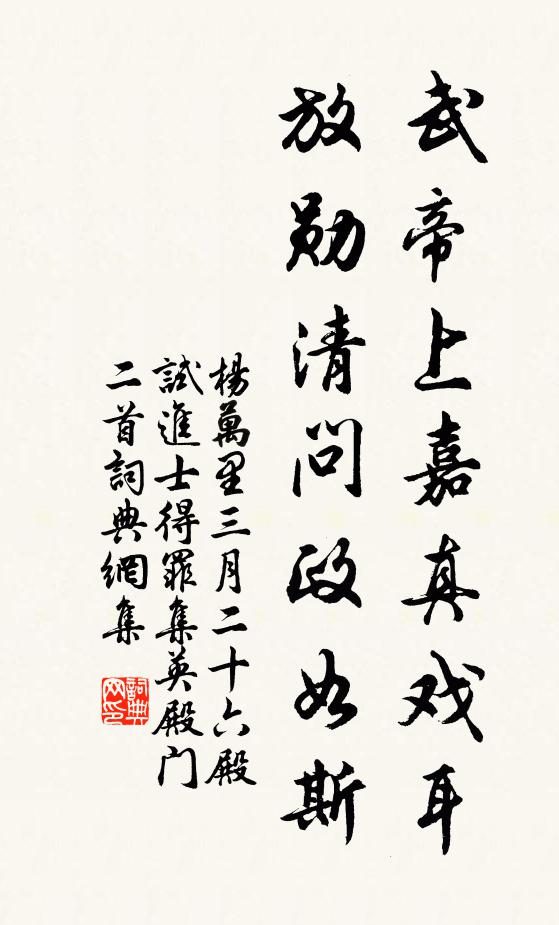 武帝上嘉真戏耳
放勋清问政如斯
楊萬里三月二十六殿
試進士得罪集英殿门
二首詞典網集
詞典网印